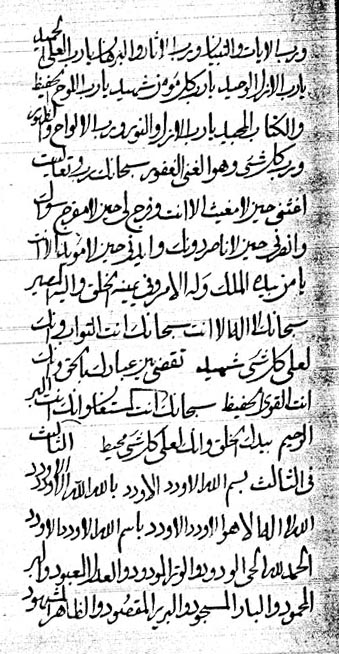 ورب الايات والبينات ورب الاثار والبرهان يا رب العلى الحميد
يا رب الابرار الوحيد يا رب كل مؤمن شهيد يا رب اللوح الحفيظ
والكتاب المجيد يا رب الابرار والنور ورب الالواح والظهور
ورب كل شئ وهو الغنى الغفور سبحانك رب وتعاليت
اغثنى حين لا مغيث الا انت وفرج لى حين لا مفرج سواك
وانصرنى حين لا ناصر دونك وايدنى حين لا مؤيد الا انت
يا من بيده الملك وله الامر وفى يمينه الخلق واليه المصير
سبحانك لا اله الا انت سبحانك انت التواب وانك
لعلى كل شئ شهيد تقضى بين عبادك بالحق وانك
انت القوى الحفيظ سبحانك وانك انت البر
الرحيم بيدك الخلق وانك لعلى كل شئ محيط الثالث
فى الثالث بسم الله الاودد الاودد بالله الله الاودد الاودد
الله لا اله الا هو الاودد الاودد باسم الله الاودد الاودد
الحمد لله الحى الودود والوتر المودود والعدل المعبود والبر
المحمود والبار المسجود والبرير المقصود والظاهر المشهود